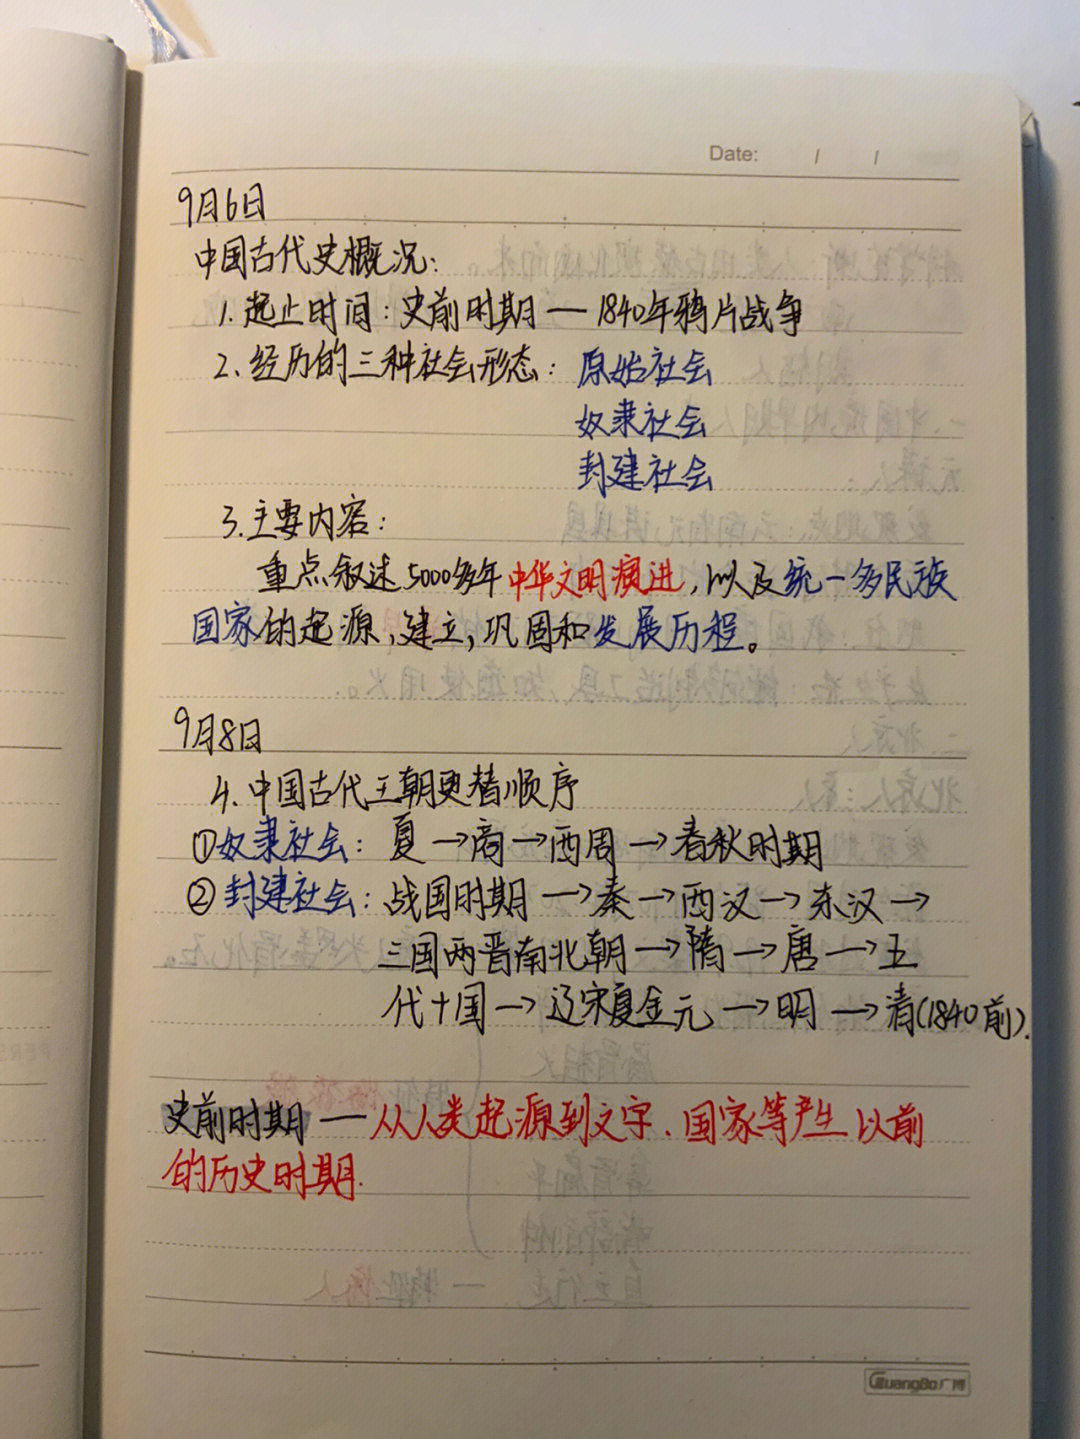 Date: / /
9月6日
中国古代史概况:
1. 起止时间:史前时期 — 1840年鸦片战争
2. 经历的三种社会形态: 原始社会
奴隶社会
封建社会
3. 主要内容:
重点叙述5000多年中华文明演进,以及统一多民族
国家的起源,建立,巩固和发展历程。
9月8日
4. 中国古代王朝更替顺序
①奴隶社会: 夏→商→西周→春秋时期
②封建社会: 战国时期→秦→西汉→东汉→
三国两晋南北朝→隋→唐→五
代十国→辽宋夏金元→明→清(1840前).
史前时期 — 从人类起源到文字、国家等产生以前
的历史时期.
GuangBo广博